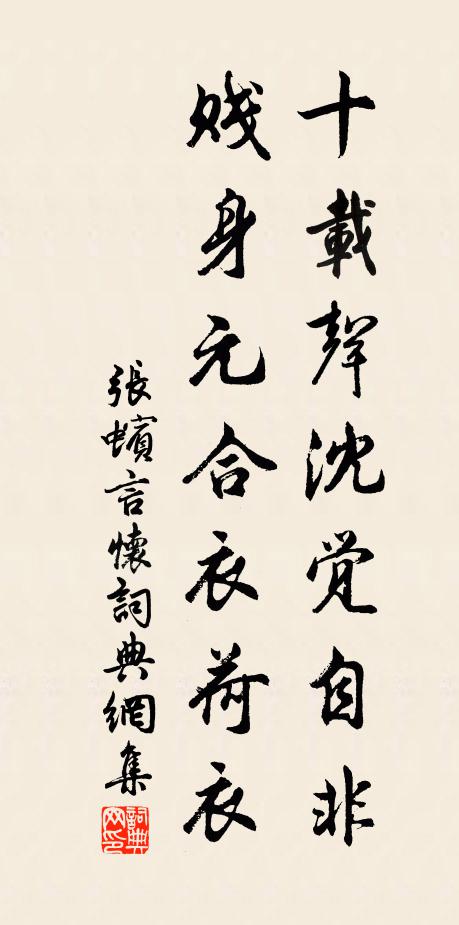 十載聲沈覚自非
賎身元合衣荷衣
張蠙言懷詞典網集
詞典网印